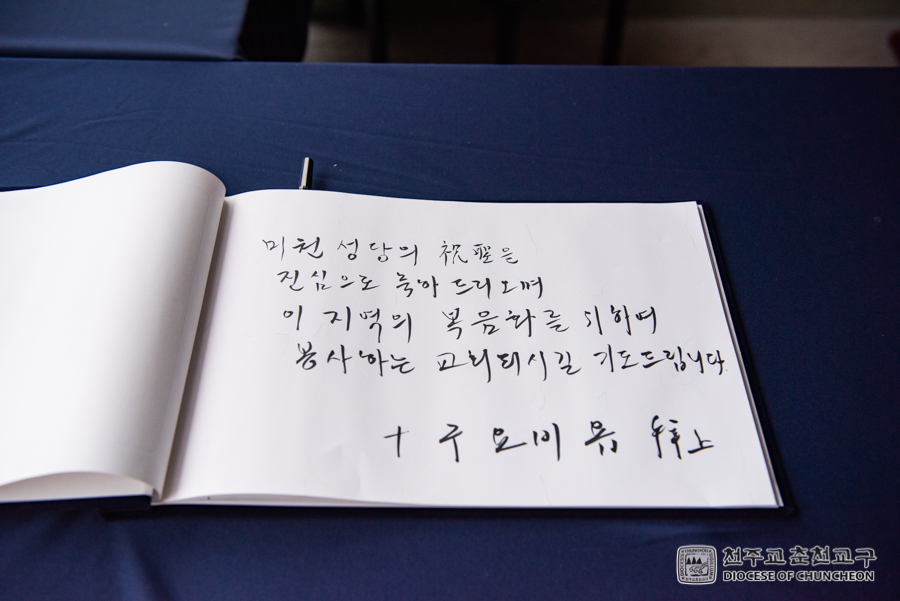 미천 성당의 祝聖을
진심으로 축하드리오며
이 지역의 복음화를 위하며
봉사하는 교회되시길 기도드립니다.
十 구 요비 욥 拜上
천주교 춘천교구
DIOCESE OF CHUNCHEON